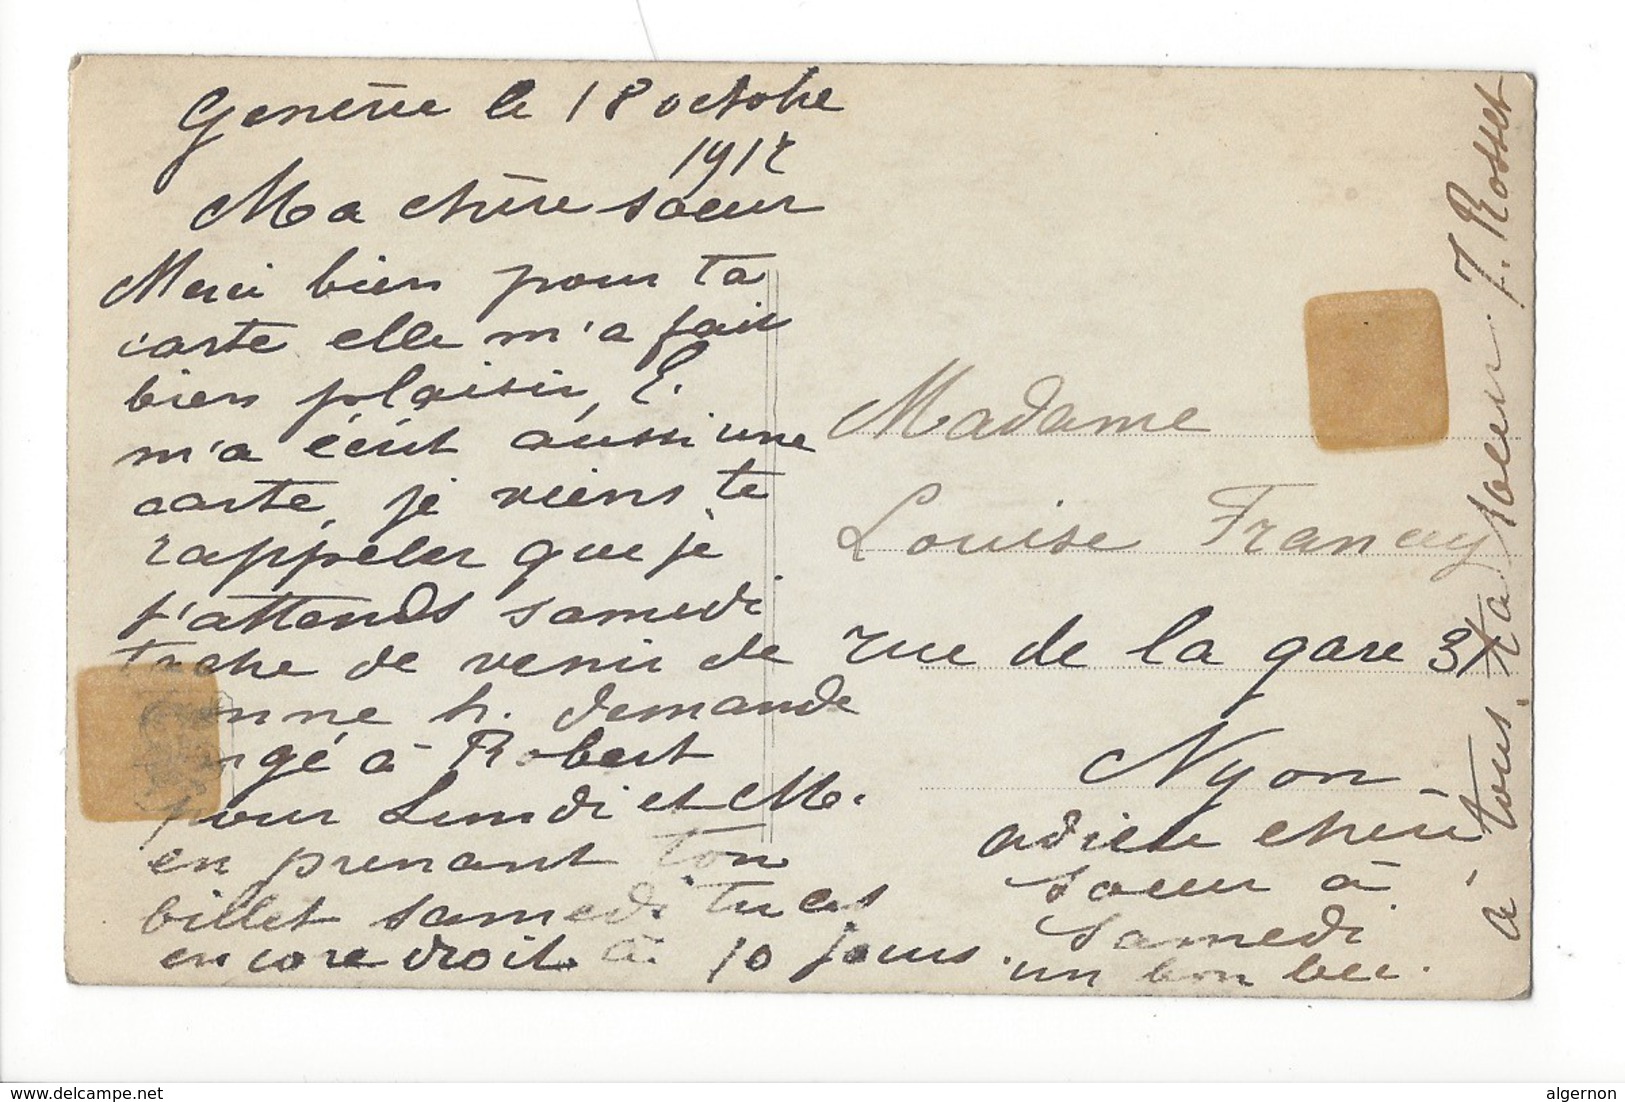 Genève le 18 octobre
191
Ma chère soeur
Merci bien pour ta
carte elle m'a fait
bien plaisir, E.
m'a écrit aussi une
carte, je viens te
rappeler que je
t'attends samedi
tache de venir de
onne h. demande
ngé à Robert
pour Lundi et M.
en prenant ton
billet samedi tu as
encore droit à 10 jours.
Madame
Louise Francey
rue de la gare 31
Nyon
adieu chère
soeur à
samedi
un bon bec.
à tous. ta soeur. J. Rosset
algernon